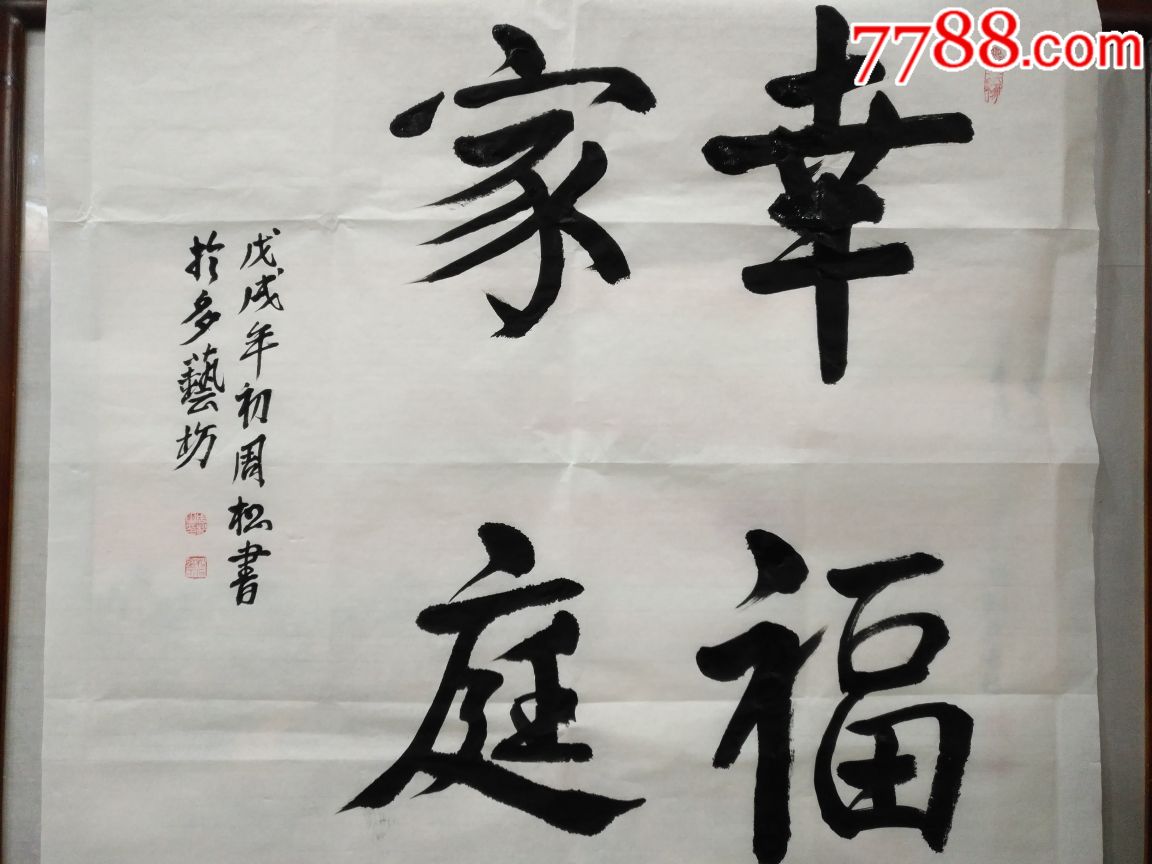 7788.com
幸福
家庭
戊戌年初周松書
於多藝坊